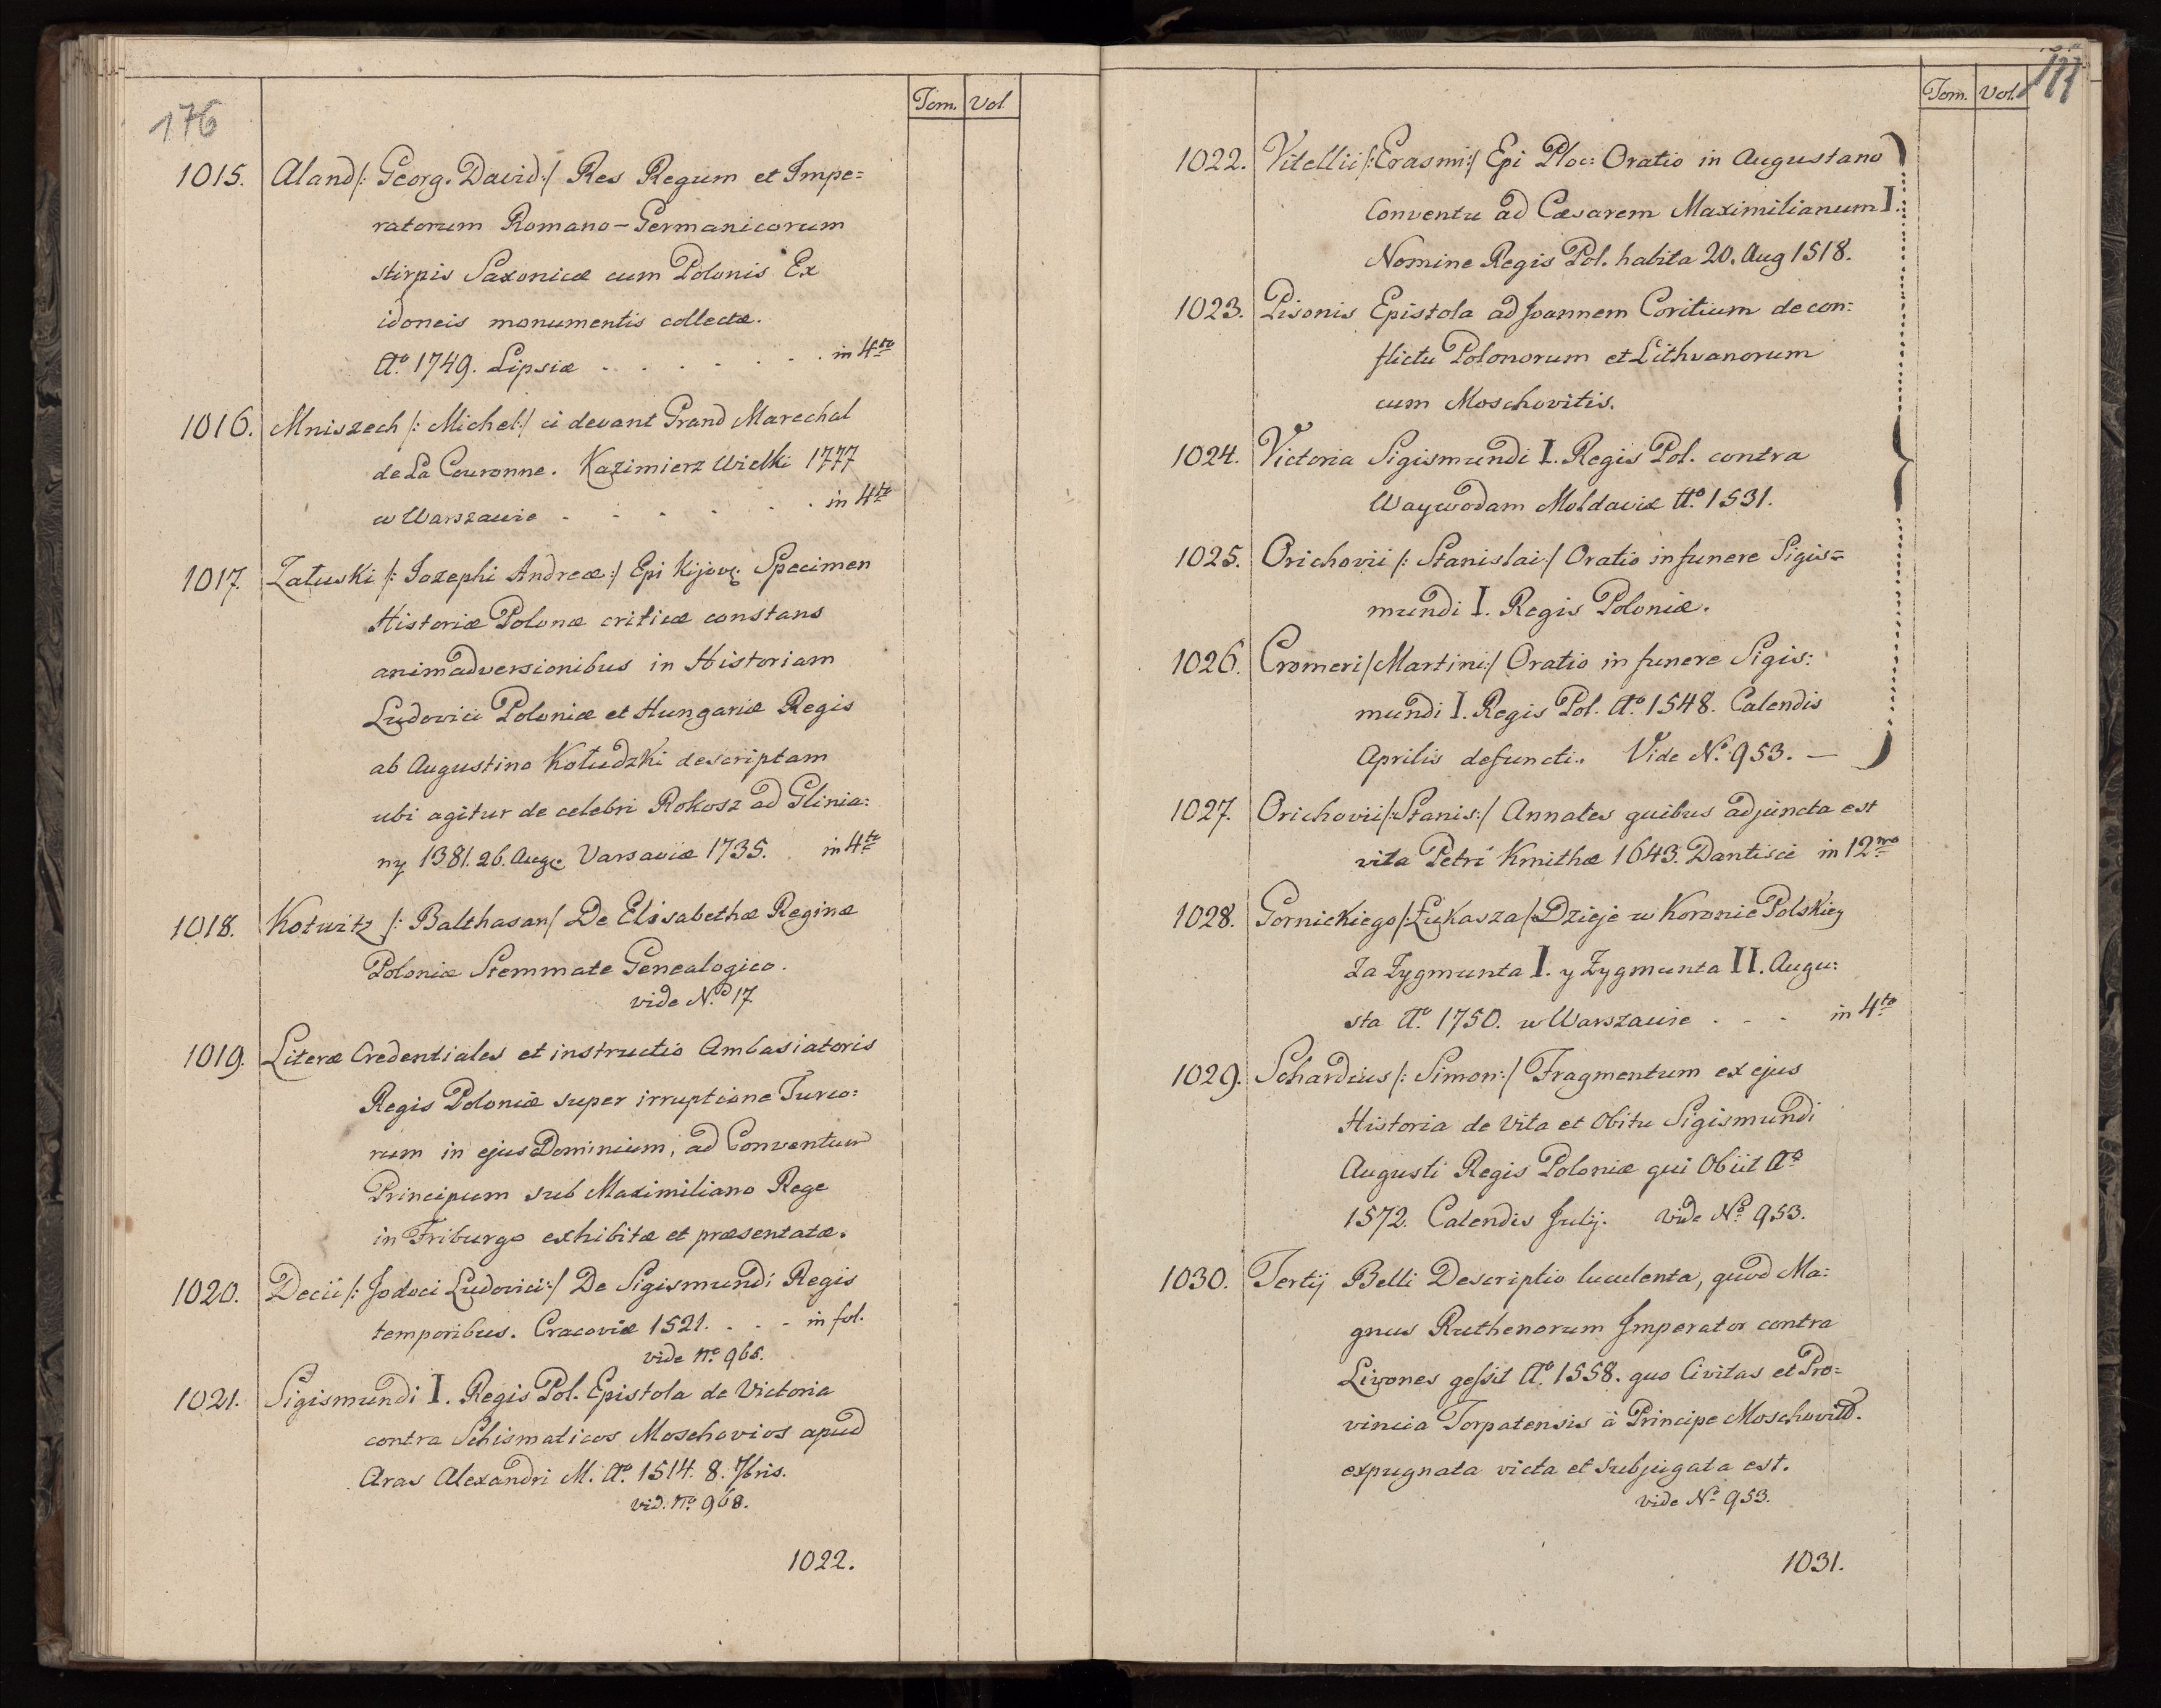 176
Tom. Vol.
1015. Aland /: Georg. David :/ Res Regum et Impe=
ratorum Romano-Germanicorum
stirpis Saxonicæ cum Polonis Ex
idoneis monumentis collectæ.
Aº 1749. Lipsiæ . . . . . . in 4to
1016. Mniszech /: Michel :/ ci devant Grand Marechal
de La Couronne. Kazimierz Wielki 1777
w Warszawie - - - - - . in 4to
1017. Załuski /: Iozephi Andreæ :/ Epi Kijov: Specimen
Historiæ Polonæ criticæ constans
animadversionibus in Historiam
Ludovici Poloniæ et Hungariæ Regis
ab Augustino Kołudzki descriptam
ubi agitur de celebri Rokosz ad Glinia:
ny 1381. 26. Aug: Varsaviæ 1735. in 4to
1018. Kotwitz /: Balthasar / De Elisabethæ Reginæ
Poloniæ Stemmate Genealogico.
vide Nº 17
1019. Literæ Credentiales et instructio Ambasiatoris
Regis Poloniæ super irruptione Turco:
rum in ejus Dominium, ad Conventum
Principum sub Maximiliano Rege
in Friburgo exhibitæ et præsentatæ.
1020. Decii /: Jodoci Ludovici :/ De Sigismundi Regis
temporibus. Cracoviæ 1521. . . - in fol.
vide nº 965.
1021. Sigismundi I. Regis Pol. Epistola de Victoria
contra Schismaticos Moschovios apud
Aras Alexandri M. Aº 1514. 8. 7bris.
vid. nº 968.
1022.
Tom. Vol.
1022. Vitellii /: Erasmi :/ Epi Ploc: Oratio in Augustano
Conventu ad Cæsarem Maximilianum I.
Nomine Regis Pol. habita 20. Aug 1518.
1023. Pisonis Epistola ad Joannem Coritium de con:
flictu Polonorum et Lithvanorum
cum Moschovitis.
1024. Victoria Sigismundi I. Regis Pol. contra
Waywodam Moldaviæ Aº 1531.
1025. Orichovii /: Stanislai :/ Oratio in funere Sigis=
mundi I. Regis Poloniæ.
1026. Cromeri / Martini :/ Oratio in funere Sigis:
mundi I. Regis Pol. Aº 1548. Calendis
Aprilis defuncti. Vide Nº 953. —
1027. Orichovii /: Stanis :/ Annales quibus adjuncta est
vita Petri Kmithæ 1643. Dantisci in 12mo
1028. Gornickiego /: Łukasza / Dzieje w Koronie Polskiey
Za Zygmunta I. y Zygmunta II. Augu:
sta Aº 1750. w Warszawie . - - in 4to
1029. Schardius /: Simon :/ Fragmentum ex ejus
Historia de Vita et Obitu Sigismundi
Augusti Regis Poloniæ qui Obiit Aº
1572. Calendis Julij. vide Nº 953.
1030. Tertij Belli Descriptio luculenta, quod Ma:
gnus Ruthenorum Imperator contra
Livones gessit Aº 1558. quo Civitas et Pro=
vincia Torpatensis à Principe Moschovit.
expugnata victa et subjugata est.
vide Nº 953.
1031.